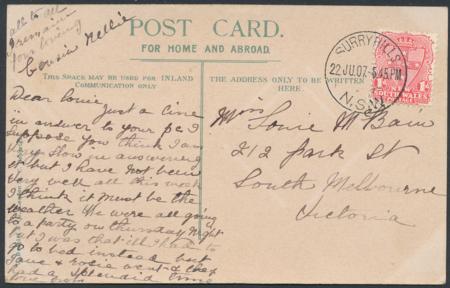 all to all
I remain
your loving
Cousin Nellie
POST CARD.
FOR HOME AND ABROAD.
THIS SPACE MAY BE USED FOR INLAND
COMMUNICATION ONLY
THE ADDRESS ONLY TO BE WRITTEN
HERE.
SURRY HILLS
22 JU.07 5.45 PM
N.S.W
SOUTH WALES
1d
Dear Louie just a line
in answer to your p c I
suppose you think I am
very slow in answering
it but I have not been
very well all this week
I think it must be the
weather We were all going
to a party on thursday night
but I was that ill I had to
go to bed instead but
& Rosie went & they
had a splendid time
Miss Louie M Bain
212 Park St
South Melbourne
Victoria